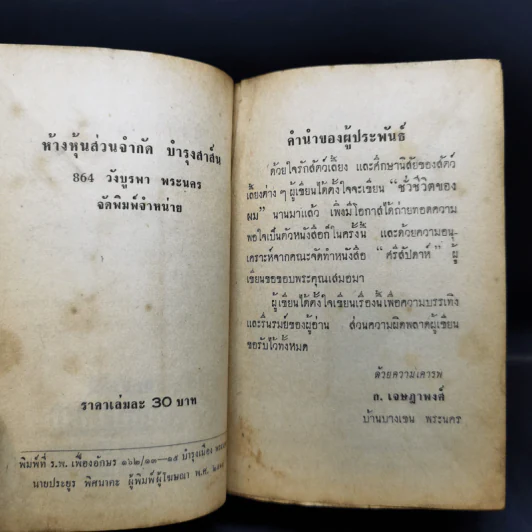 ห้างหุ้นส่วนจำกัด บำรุงสาส์น
864 วังบูรพา พระนคร
จัดพิมพ์จำหน่าย
ราคาเล่มละ 30 บาท
พิมพ์ที่ ร.พ. เฟื่องอักษร ๑๖๒/๑๓—๑๕ บำรุงเมือง
นายประยูร พิศนาคะ ผู้พิมพ์ผู้โฆษณา พ.ศ.
คำนำของผู้ประพันธ์
ด้วยใจรักสัตว์เลี้ยง และศึกษานิสัยของสัตว์
เลี้ยงต่าง ๆ ผู้เขียนได้ตั้งใจจะเขียน “ชั่วชีวิตของ
ผม” นานมาแล้ว เพิ่งมีโอกาสได้ถ่ายทอดความ
พอใจเป็นตัวหนังสือก็ในครั้งนี้ และด้วยความอนุ-
เคราะห์จากคณะจัดทำหนังสือ “ศรีสัปดาห์” ผู้
เขียนขอขอบพระคุณเสมอมา
ผู้เขียนได้ตั้งใจเขียนเรื่องนี้เพื่อความบรรเทิง
และรื่นรมย์ของผู้อ่าน ส่วนความผิดพลาดผู้เขียน
ขอรับไว้ทั้งหมด
ด้วยความเคารพ
ถ. เจษฎาพงศ์
บ้านบางเขน พระนคร